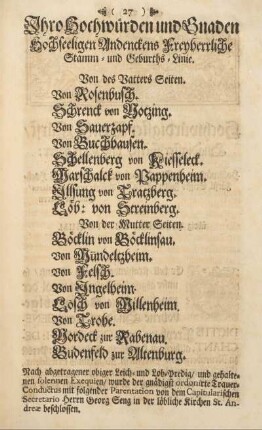 ( 27 )
Ihro Hochwürden und Gnaden
Hochseeligen Andenckens Freyherrliche
Stamm- und Geburths-Linie.
Von des Vatters Seiten.
Von Rosenbusch.
Schrenck von Notzing.
Von Sauerzapf.
Von Buchhausen.
Schellenberg von Kiesseleck.
Marschalck von Pappenheim.
Ilsung von Tratzberg.
Löb: von Streimberg.
Von der Mutter Seiten.
Böcklin von Böcklinsau.
Von Mündeltzheim.
Von Felsch.
Von Ingelheim.
Losch von Millenheim.
Von Trohe.
Nordeck zur Rabenau.
Budenfeld zur Altenburg.
Nach abgetragener obiger Leich- und Lob-Predig, und gehalte-
nen solennen Exequien, wurde der gnädigst ordonirte Trauer-
Conductus mit folgender Parentation von dem Capitularischen
Secretario Herrn Georg Seng in der löbliche Kirchen St. An-
dreæ beschlossen.